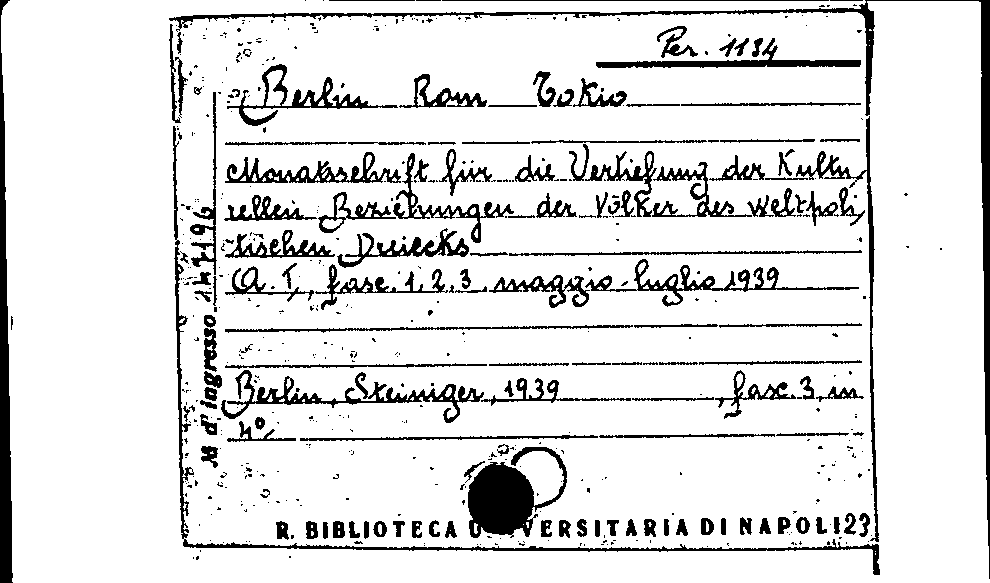 Per. 1134
Berlin Rom Tokio
Monatsschrift für die Vertiefung der Kultu,
rellen Beziehungen der Völker des weltpoli,
tischen Dreiecks
A. I, fasc. 1, 2, 3, maggio-luglio 1939
Berlin, Steiniger, 1939 , fasc. 3, in
4º,
d'ingresso
R. BIBLIOTECA UNIVERSITARIA DI NAPOLI 23